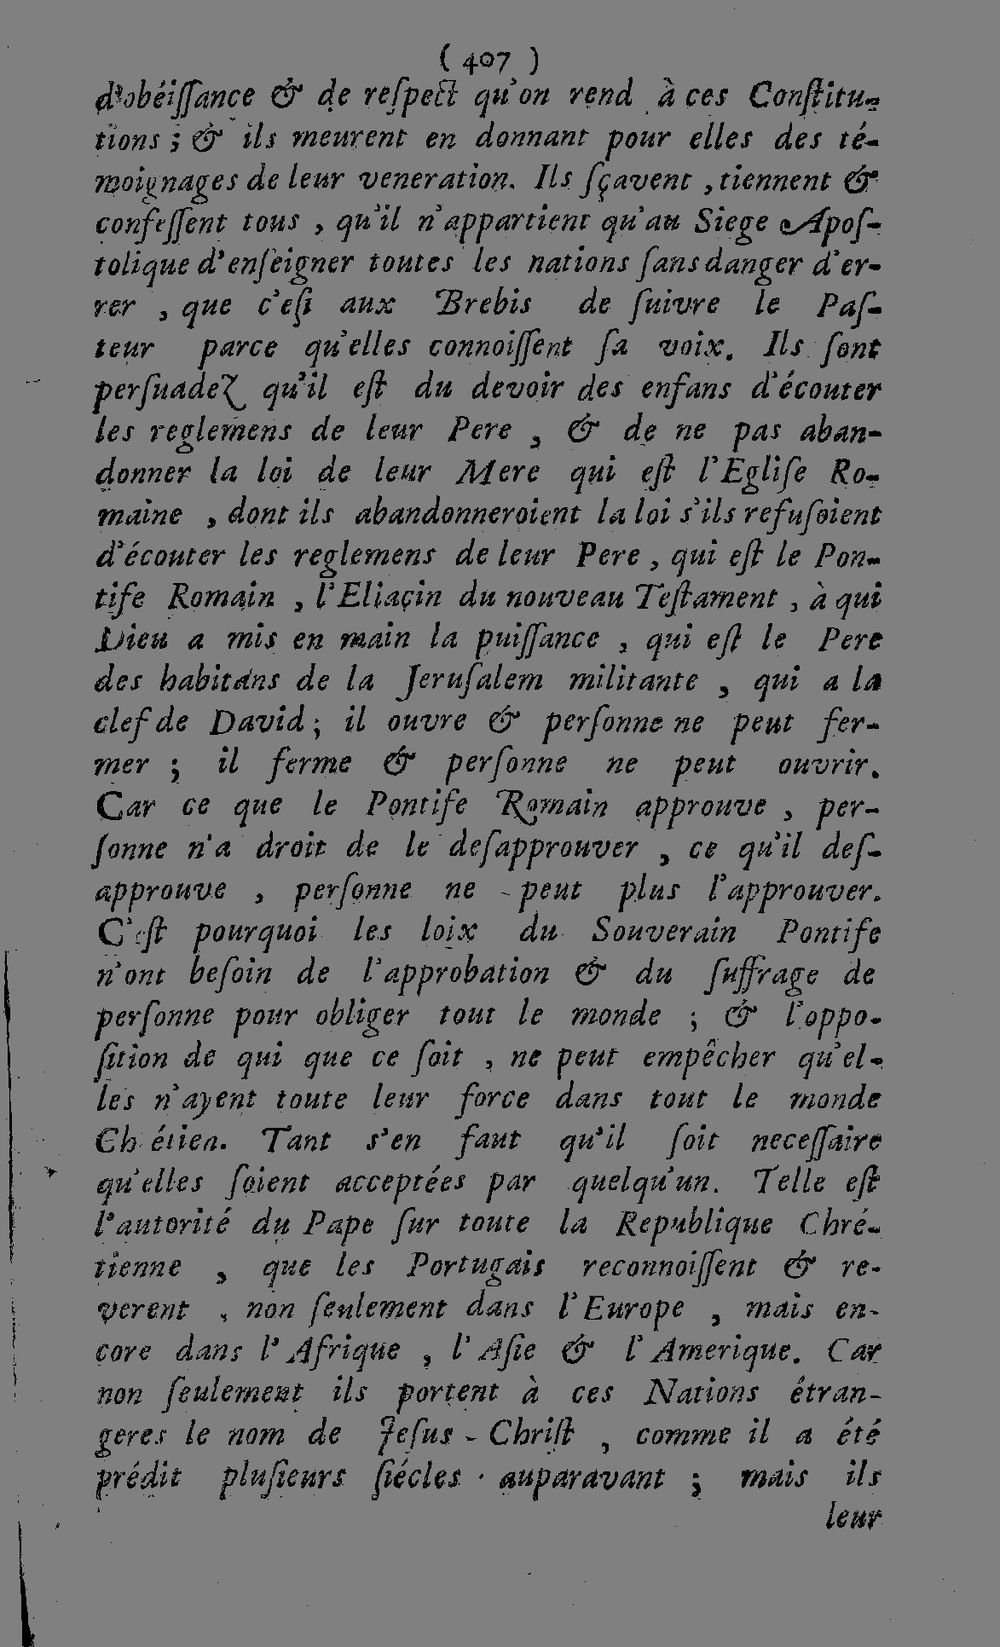 ( 407 )
d'obéiſſance & de reſpect qu'on rend à ces Conſtitu-
tions ; & ils meurent en donnant pour elles des té-
moignages de leur veneration. Ils ſçavent , tiennent &
confeſſent tous , qu'il n'appartient qu'au Siege Apoſ-
tolique d'enſeigner toutes les nations ſans danger d'er-
rer , que c'eſt aux Brebis de ſuivre le Paſ-
teur parce qu'elles connoiſſent ſa voix. Ils ſont
perſuadez qu'il eſt du devoir des enfans d'écouter
les reglemens de leur Pere , & de ne pas aban-
donner la loi de leur Mere qui eſt l'Egliſe Ro-
maine , dont ils abandonneroient la loi s'ils refuſoient
d'écouter les reglemens de leur Pere , qui eſt le Pon-
tife Romain , l'Eliacin du nouveau Teſtament , à qui
Dieu a mis en main la puiſſance , qui eſt le Pere
des habitans de la Jeruſalem militante , qui a la
clef de David ; il ouvre & perſonne ne peut fer-
mer ; il ferme & perſonne ne peut ouvrir.
Car ce que le Pontife Romain approuve , per-
ſonne n'a droit de le deſapprouver , ce qu'il deſ-
approuve , perſonne ne peut plus l'approuver.
C'eſt pourquoi les loix du Souverain Pontife
n'ont beſoin de l'approbation & du ſuffrage de
perſonne pour obliger tout le monde ; & l'oppo-
ſition de qui que ce ſoit , ne peut empêcher qu'el-
les n'ayent toute leur force dans tout le monde
Chrétien. Tant s'en faut qu'il ſoit neceſſaire
qu'elles ſoient acceptées par quelqu'un. Telle eſt
l'autorité du Pape ſur toute la Republique Chré-
tienne , que les Portugais reconnoiſſent & re-
verent , non ſeulement dans l'Europe , mais en-
core dans l'Afrique , l'Aſie & l'Amerique. Car
non ſeulement ils portent à ces Nations étran-
geres le nom de Jeſus-Chriſt , comme il a été
prédit pluſieurs ſiécles auparavant ; mais ils
leur